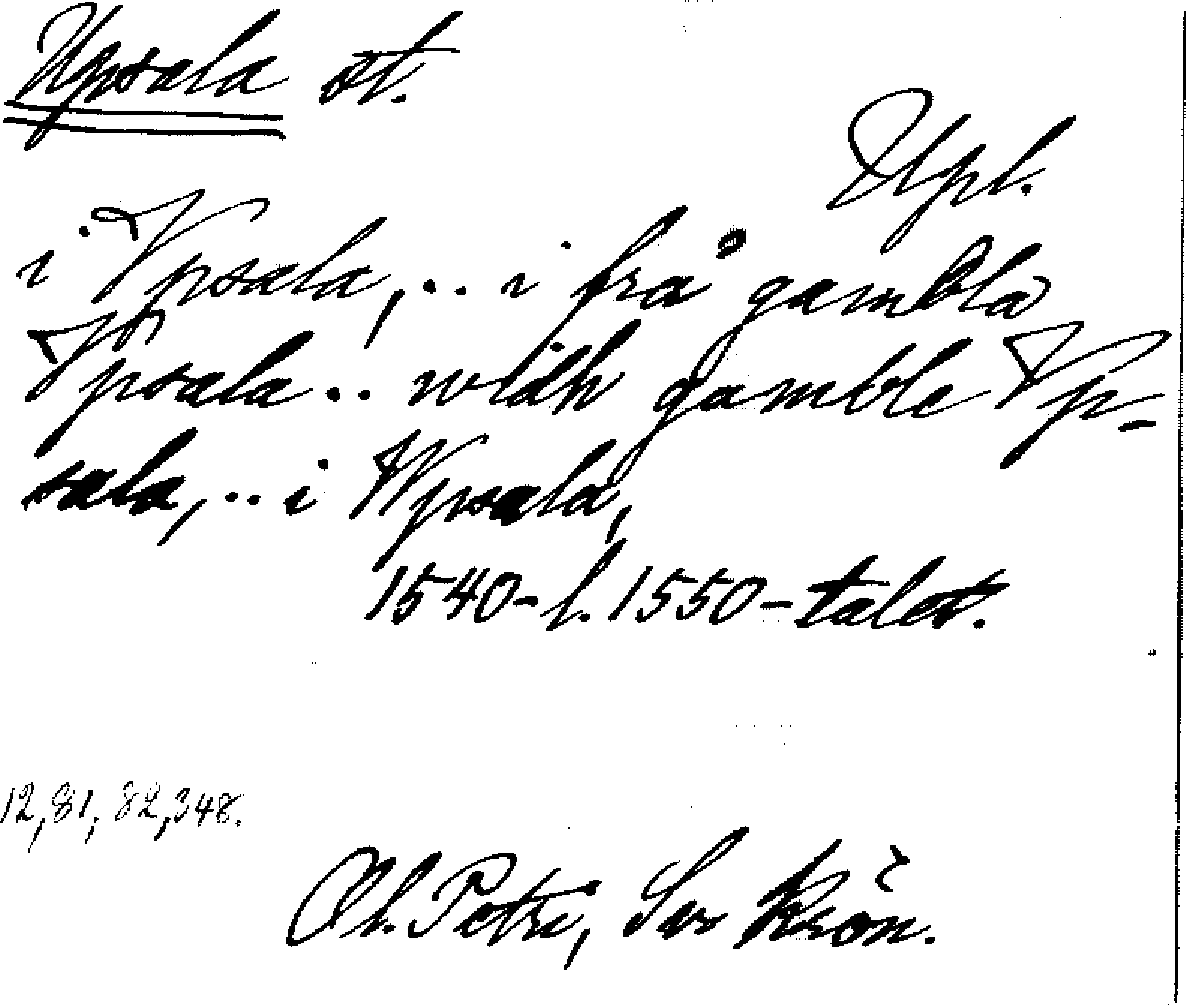 Upsala st.
Upl.
i Vpsala,.. i frå gambla
Vpsala.. widh gamble Vp-
sala,.. i Wpsala,
1540- l. 1550-talet.
12, 81, 82, 348.
Ol. Petri, Sv. Krön.